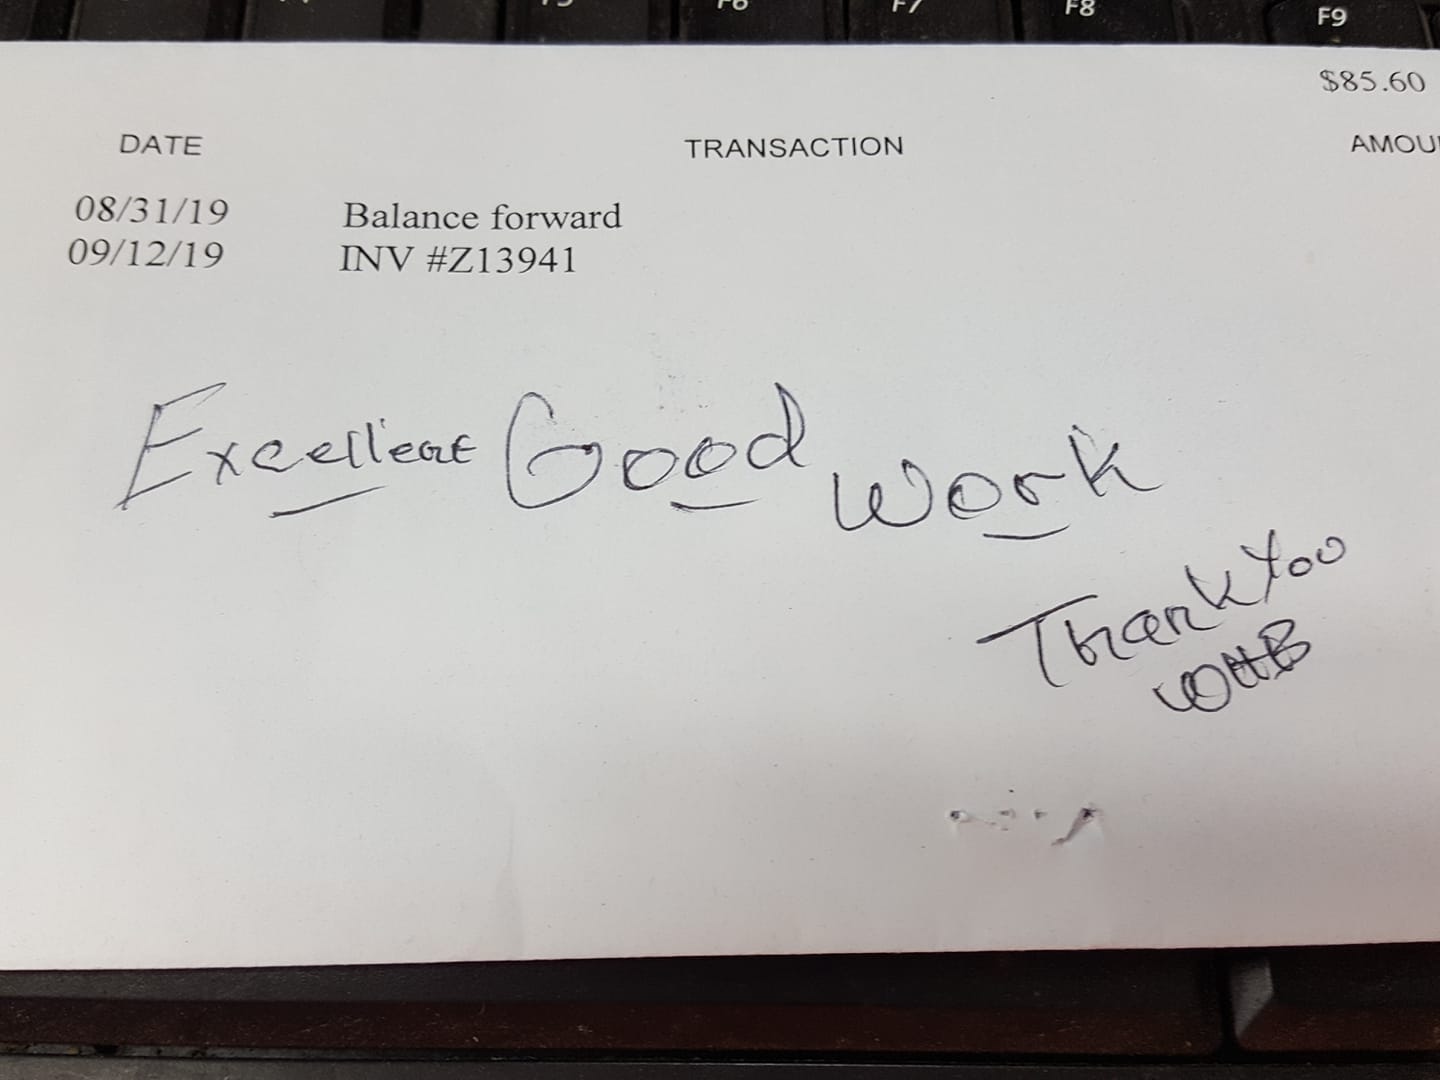 F6 F7 F8 F9
$85.60
DATE TRANSACTION AMOU
08/31/19 Balance forward
09/12/19 INV #Z13941
Excellent Good Work
Thank You
WHB